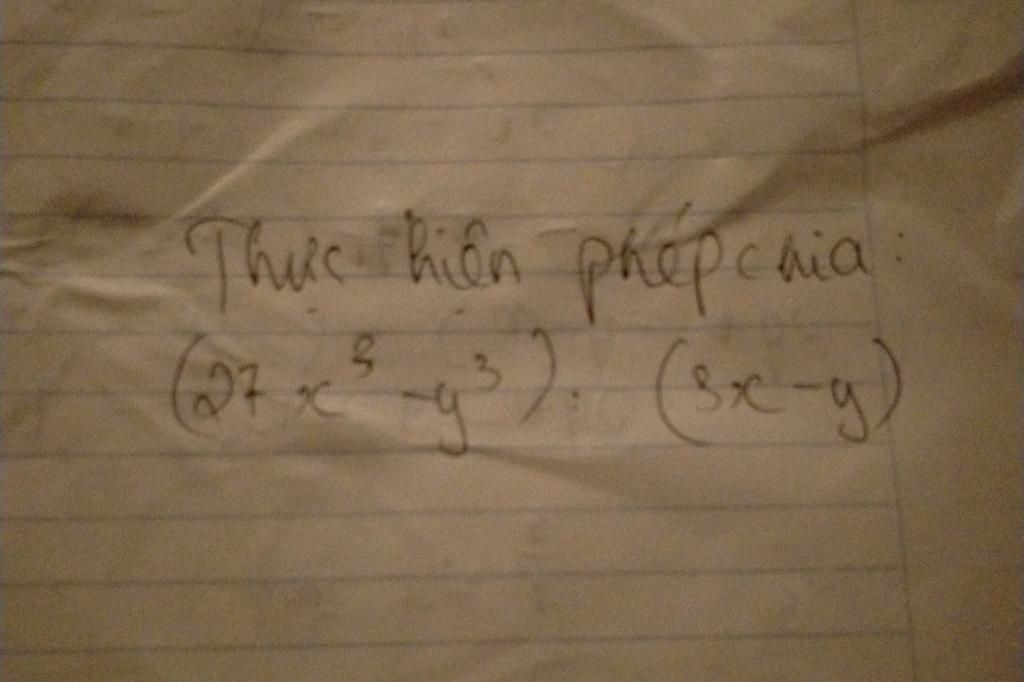 Thực hiện phép chia:
(27x³ - y³): (3x - y)